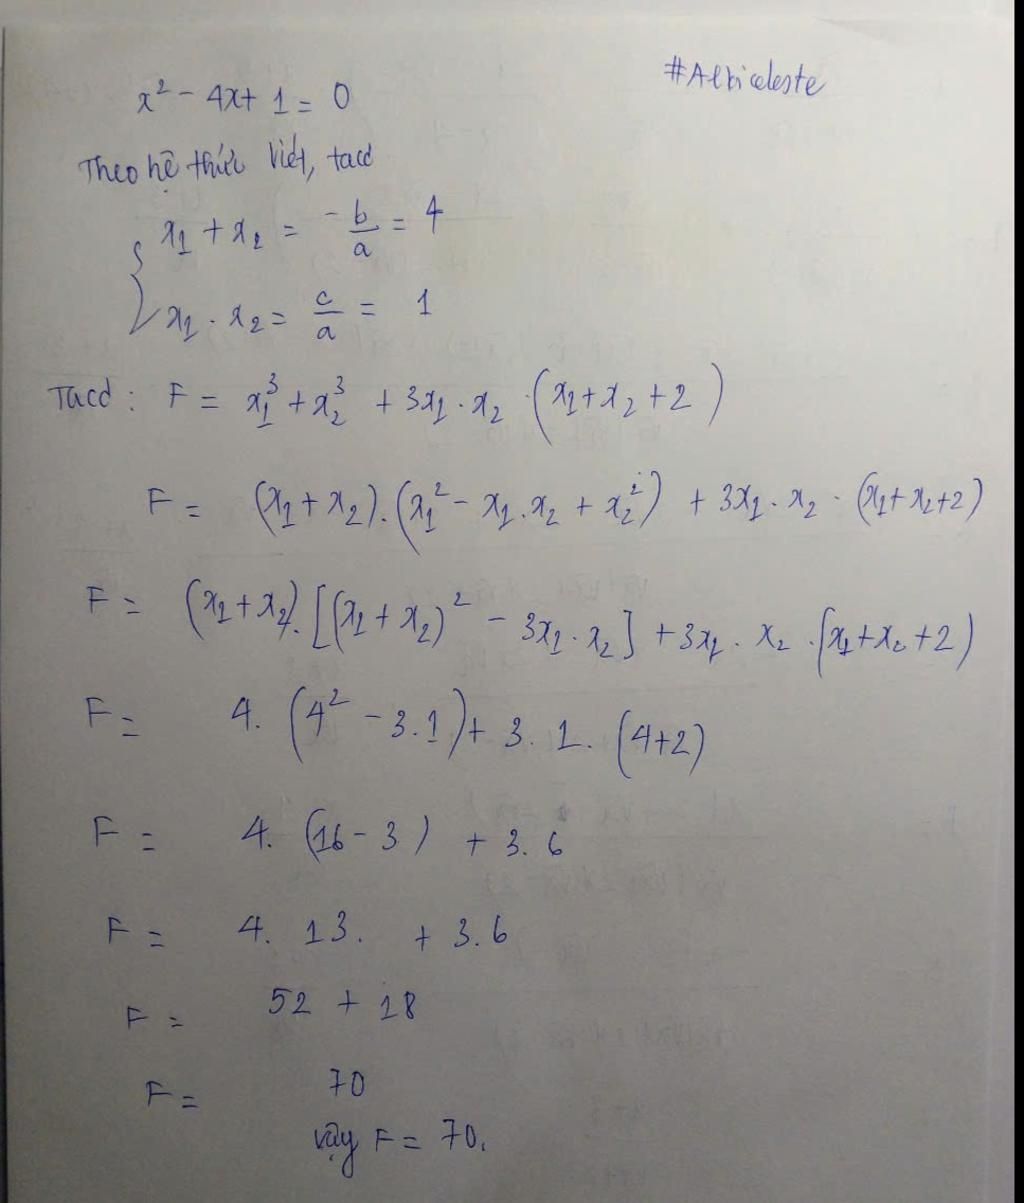 #Albiceleste
x² - 4x + 1 = 0
Theo hệ thức Viét, tacó
x₁ + x₂ = -b/a = 4
x₁ . x₂ = c/a = 1
Tacó : F = x₁³ + x₂³ + 3x₁ . x₂ . (x₁ + x₂ + 2)
F = (x₁ + x₂) . (x₁² - x₁ . x₂ + x₂²) + 3x₁ . x₂ . (x₁ + x₂ + 2)
F = (x₁ + x₂) . [(x₁ + x₂)² - 3x₁ . x₂] + 3x₁ . x₂ . (x₁ + x₂ + 2)
F = 4. (4² - 3.1) + 3. 1. (4+2)
F = 4. (16 - 3) + 3. 6
F = 4. 13. + 3. 6
F = 52 + 18
F = 70
vậy F = 70.